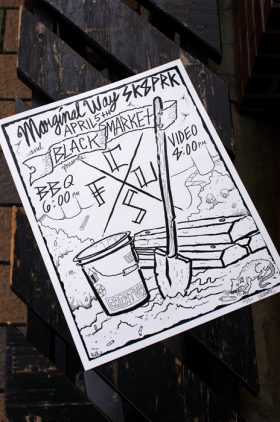 Marginal Way SK8PRK
APRIL 5TH
and BLACK MARKET
presents
BBQ
6:00PM
VIDEO
8:00PM